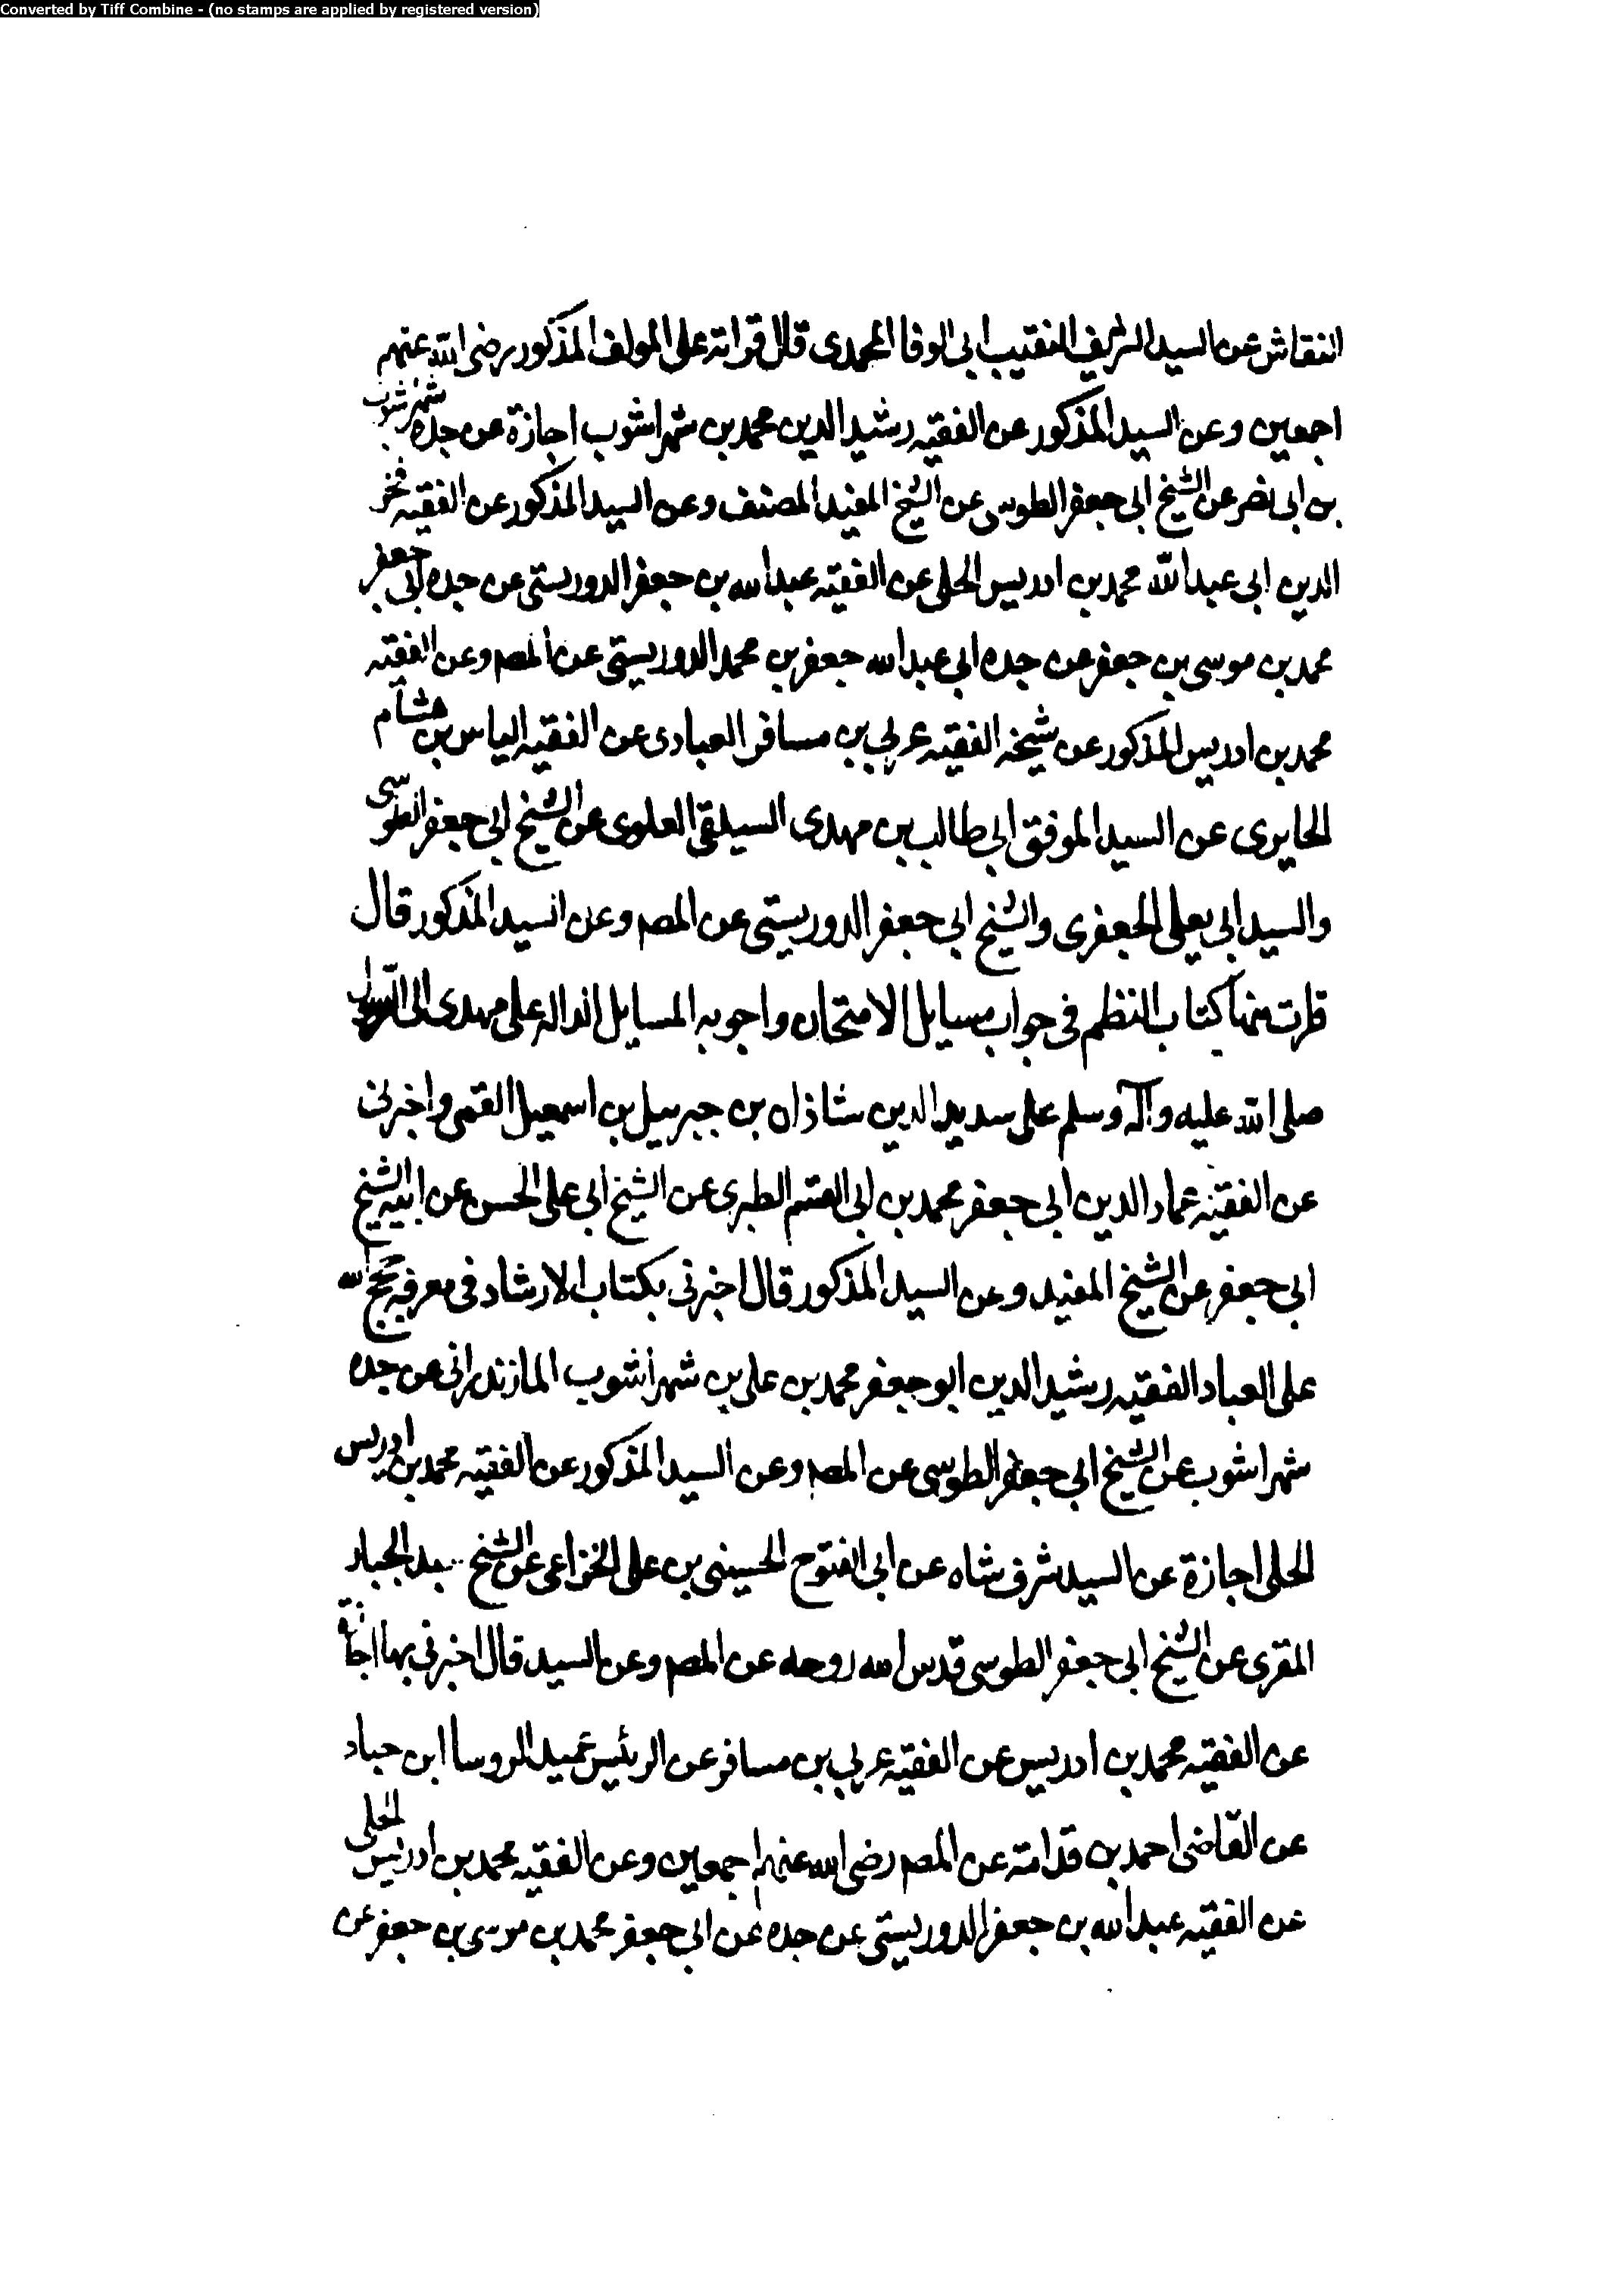 Converted by Tiff Combine - (no stamps are applied by registered version)
النقاش عن السيد الشريف النقيب ابى الوفا المحمدى قال قراته على المولف المذكور رضى الله عنهم
اجمعين وعن السيد المذكور عن الفقيه رشيد الدين محمد بن شهراشوب اجازة عن جده شهراشوب
بن ابى نصر عن الشيخ ابى جعفر الطوسى عن الشيخ المفيد المصنف وعن السيد المذكور عن الفقيه فخر
الدين ابى عبد الله محمد بن ادريس الحلى عن الفقيه عبد الله بن جعفر الدوريستى عن جده ابى جعفر
محمد بن موسى بن جعفر عن جده ابى عبد الله جعفر بن محمد الدوريستى عن المصـ وعن الفقيه
محمد بن ادريس المذكور عن شيخه الفقيه عربى بن مسافر العبادى عن الفقيه الياس بن هشام
الحايرى عن السيد الموفق ابى طالب بن مهدى السيلقى العلوى عن الشيخ ابى جعفر الطوسى
والسيد ابى يعلى الجعفرى والشيخ ابى جعفر الدوريستى عن المصـ وعن السيد المذكور قال
قرات منها كتاب النظم فى جواب مسايل الامتحان واجوبه المسايل الداله على مهدى الى الرسول
صلى الله عليه وآله وسلم على سديد الدين شاذان بن جبرييل بن اسمعيل القمى واخبرنى
عن الفقيه عماد الدين ابى جعفر محمد بن ابى القسم الطبرى عن الشيخ ابى على الحسن عن ابيه الشيخ
ابى جعفر عن الشيخ المفيد وعن السيد المذكور قال اخبرنى بكتاب الارشاد فى معرفه حجج الله
على العباد الفقيه رشيد الدين ابو جعفر محمد بن على بن شهراشوب المازندرانى عن جده
شهراشوب عن الشيخ ابى جعفر الطوسى عن المصـ وعن السيد المذكور عن الفقيه محمد بن ادريس
الحلى اجازة عن السيد شرف شاه عن ابى الفتوح الحسينى بن على الخزاعى عن الشيخ عبد الجبار
المقرى عن الشيخ ابى جعفر الطوسى قدس الله روحه عن المصـ وعن السيد قال اخبرنى بها اجازة
عن الفقيه محمد بن ادريس عن الفقيه عربى بن مسافر عن الرئيس عميد الروسا ابن حباد
عن القاضى احمد بن قدامة عن المصـ رضى الله عنهم اجمعين وعن الفقيه محمد بن ادريس الحلى
عن الفقيه عبد الله بن جعفر الدوريستى عن جده عن ابى جعفر محمد بن موسى بن جعفر عن